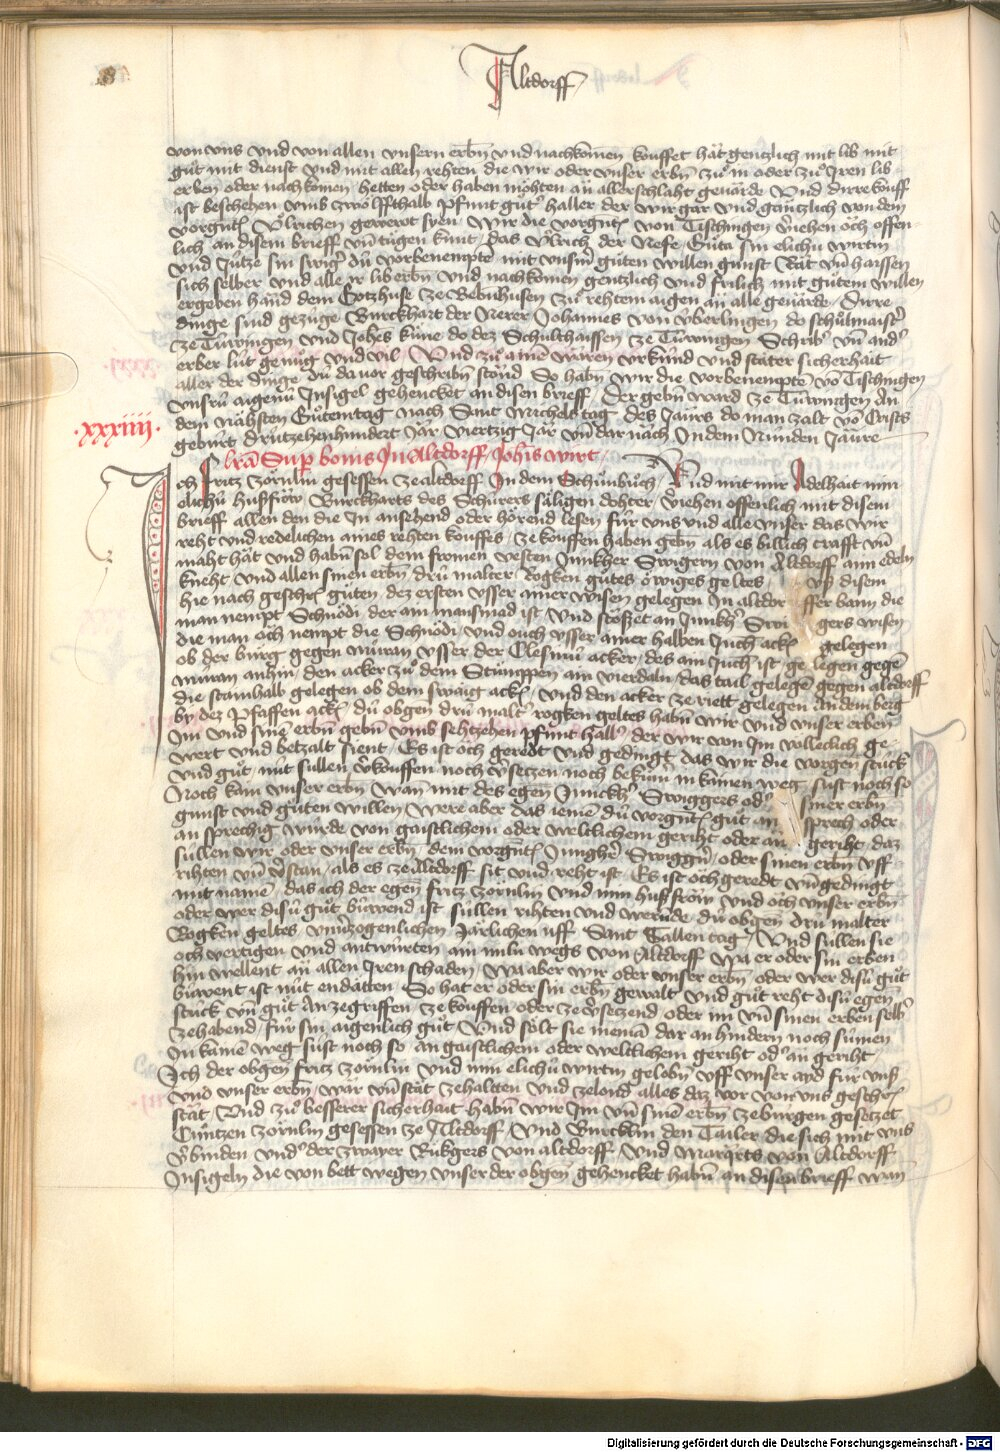 Altdorff
von vns vnd von allen vnsern erbn̄ vnd nachkomen kouffet hăt gentzlich mit lib mit
gůt mit dienst vnd mit allen rehten die wir oder vnser erbn̄ zů im oder zů Iren lib
erben oder nachkomen hetten oder haben mŏhten an allerschlaht geuărde Vnd dirre kouff
ist beschehen vmb zwŏlffthalb pfunt gůt haller der wir gar vnd găntzlich von dem
vorgn̄t Vŏlrichen gewerot syen Wir die vorgn̄t von Tischingen v̄iehen ŏch offen
lich an disem brieff vn̄ tůgen kunt das Vlrich der Nefe Gůta sin elichu wirtin
vnd Jůtze sin du vorbenempte mit vnsrm̄ gůten willen gunst Răt vn̄ haissen
sich selber vnd alle ir lib erbn̄ vnd nachkomen gentzlich vnd frilich mit gůtem willen
ergeben hănd dem Gotzhuse ze Bebnhusen zů rehtem aigen ăn alle geuărde Dirre
dinge sind gezuge Burckhart der Johannes von v̆berlingen do schůlmaist
ze Tuwingen vnd Johes kůne do dez Schulthaissen ze Tuwingen Schrib vn̄ and
erber lut genůg vnd vil Vnd zů aine wăren vrkund vnd stăter sicherhait
aller der dinge du da vor geschribn̄ stond So habn̄ wir die vorbenempte vo Tischingen
vnsru aigenn Insigel gehencket an disen brieff Der gebn̄ ward ze Tuwingen An
dem năhsten Gůtemtag nach Sant Michels tag des Jaurs do man zalt vo Crists
geburt drutzehenhundert Jăr viertzig Jăr vn̄ dar năch In dem Nunden Jaure
·xxxiiij·
lrā Sup bonis In Altdorff Johis wirt
Ich Fritz zŏrnlin gesessen ze altdorff In dem Schŭnbůch Vnd mit mir Adelhait min
elichu Hussfrŏw Burckharts des Schurers săligen dohter v̄iehen offenlich mit disem
brieff allen den die In ansehend oder hŏrend lesen fur vns vnd alle vnser das wir
reht vnd redelichen aines rehten kouffes ze kouffen haben gebn̄ als es billich crafft vn̄
maht hăt vnd habn̄ sol dem fromen vesten Junkher Swigern von Altdorff aim edeln
kneht vnd allen sinen erbn̄ dru malter Rogken gůtes ĕwiges geltes vss disem
hie nach geschr gůten dez ersten vsser ainer wisen gelegen In altdorffer bann die
man nempt Schnŏdi der ain mansmad ist Vnd stŏsset an Junkh Swigers wisen
die man ŏch nempt die Schnŏdi vnd ouch vsser ainer halben Juch ack gelegen
ob der burg gegen muran vsser der Clesmů acker des ain Juch ist gelegen gege
muran anhin den acker zů dem Stumppen ain vierdaln das tail gelege gegen altdorff
die stainhalb gelegen ob dem swaig ack vnd den acker ze riett gelegen An dem berg
by dez Pfaffen ack du obgen dru malt rogken geltes habn̄ wir vnd vnser erben
Im vnd sine erbn̄ gebn̄ vmb sehtzehen pfunt hall der wir von Im volleclich ge
wert vnd betzalt sient Es ist ŏch geredt vnd gedingt das wir die vorgen stuck
vnd gůt nut sullen v̄kouffen noch v̄setzen noch bekum in kainen weg sust noch so
Noch kain vnser erbn̄ wan mit des egen Junckh Swiggers od siner erbn̄
gunst vnd gůten willen Were aber das ieme du vorgn̄t gůt ansprech oder
ansprechig wurde von gaistlichem oder weltlichem geriht oder an geriht daz
sullen wir oder vnser erbn̄ dem vorgn̄t Junghe Swigg oder sinen erbn̄ vff
rihten vn̄ v̄stan als es ze Altdorff sit vnd reht ist Es ist ŏch geredt vn̄ gedingt
mit name das ich der egen fritz zornlin vnd min hussfrŏw vnd ŏch vnser erbn̄
oder wer disu gůt buwend ist sullen rihten vnd wernde du obgen dru malter
Rogken geltes vnu̇zogenlichen Jărlichen vff Sant Gallen tag Vnd sullen sie
ŏch vertigen vnd antwurten ain miln wegs von Altdorff wa er oder sin erben
hin wellent an allen Iren schaden Wa aber wir oder vnser erbn̄ oder wer disu gůt
buwent ist nut endatten So hat er oder sin erbn̄ gewalt vnd gůt reht disu egen
stuck vn̄ gůt Anzegriffen ze kouffen oder ze v̄setzend oder im vn̄ sinen erben selb
ze habend fur sin aigenlich gůt Vnd sŏlt sie niema dar an hindern noch sumen
In kaine weg sust noch so An gaistlichem oder weltlichem geriht od an geriht
Ich der obgen fritz zornlin vnd min elichu wirtin gelobn̄ vff vnser ayd fur vns
vnd vnser erbn̄ wăr vn̄ stăt ze haltten vnd ze loud alles daz vor von vns geschr
stăt Vnd zů besserer sicherhait habn̄ wir Im vn̄ sine erbn̄ ze burgen gesetzet
Cůntzen zŏrnlin gesessen ze Altdorff Vnd Burcklin den Tailer die sich mit vns
v̄binden vnd der zwayer Rukgers von altdorff vnd Marqrts von Altdorff
Insigeln die von bett wegen vnser der obgen gehencket habn̄ an disen brieff wan
Digitalisierung gefördert durch die Deutsche Forschungsgemeinschaft - DFG